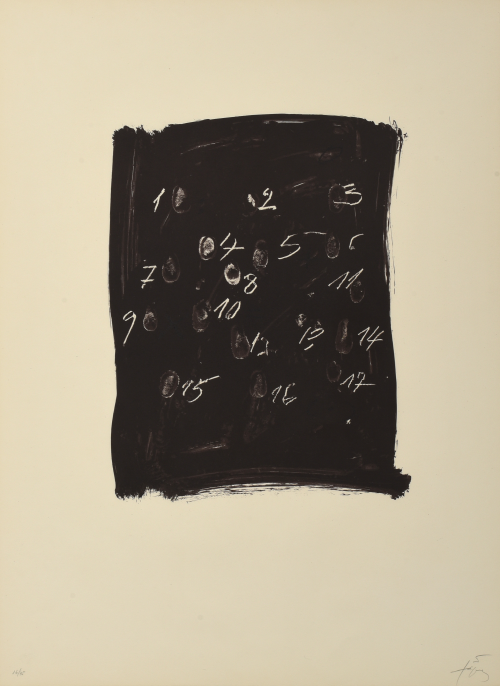 1 2 3
4 5
7 8 11
9 10
14
15 16 17